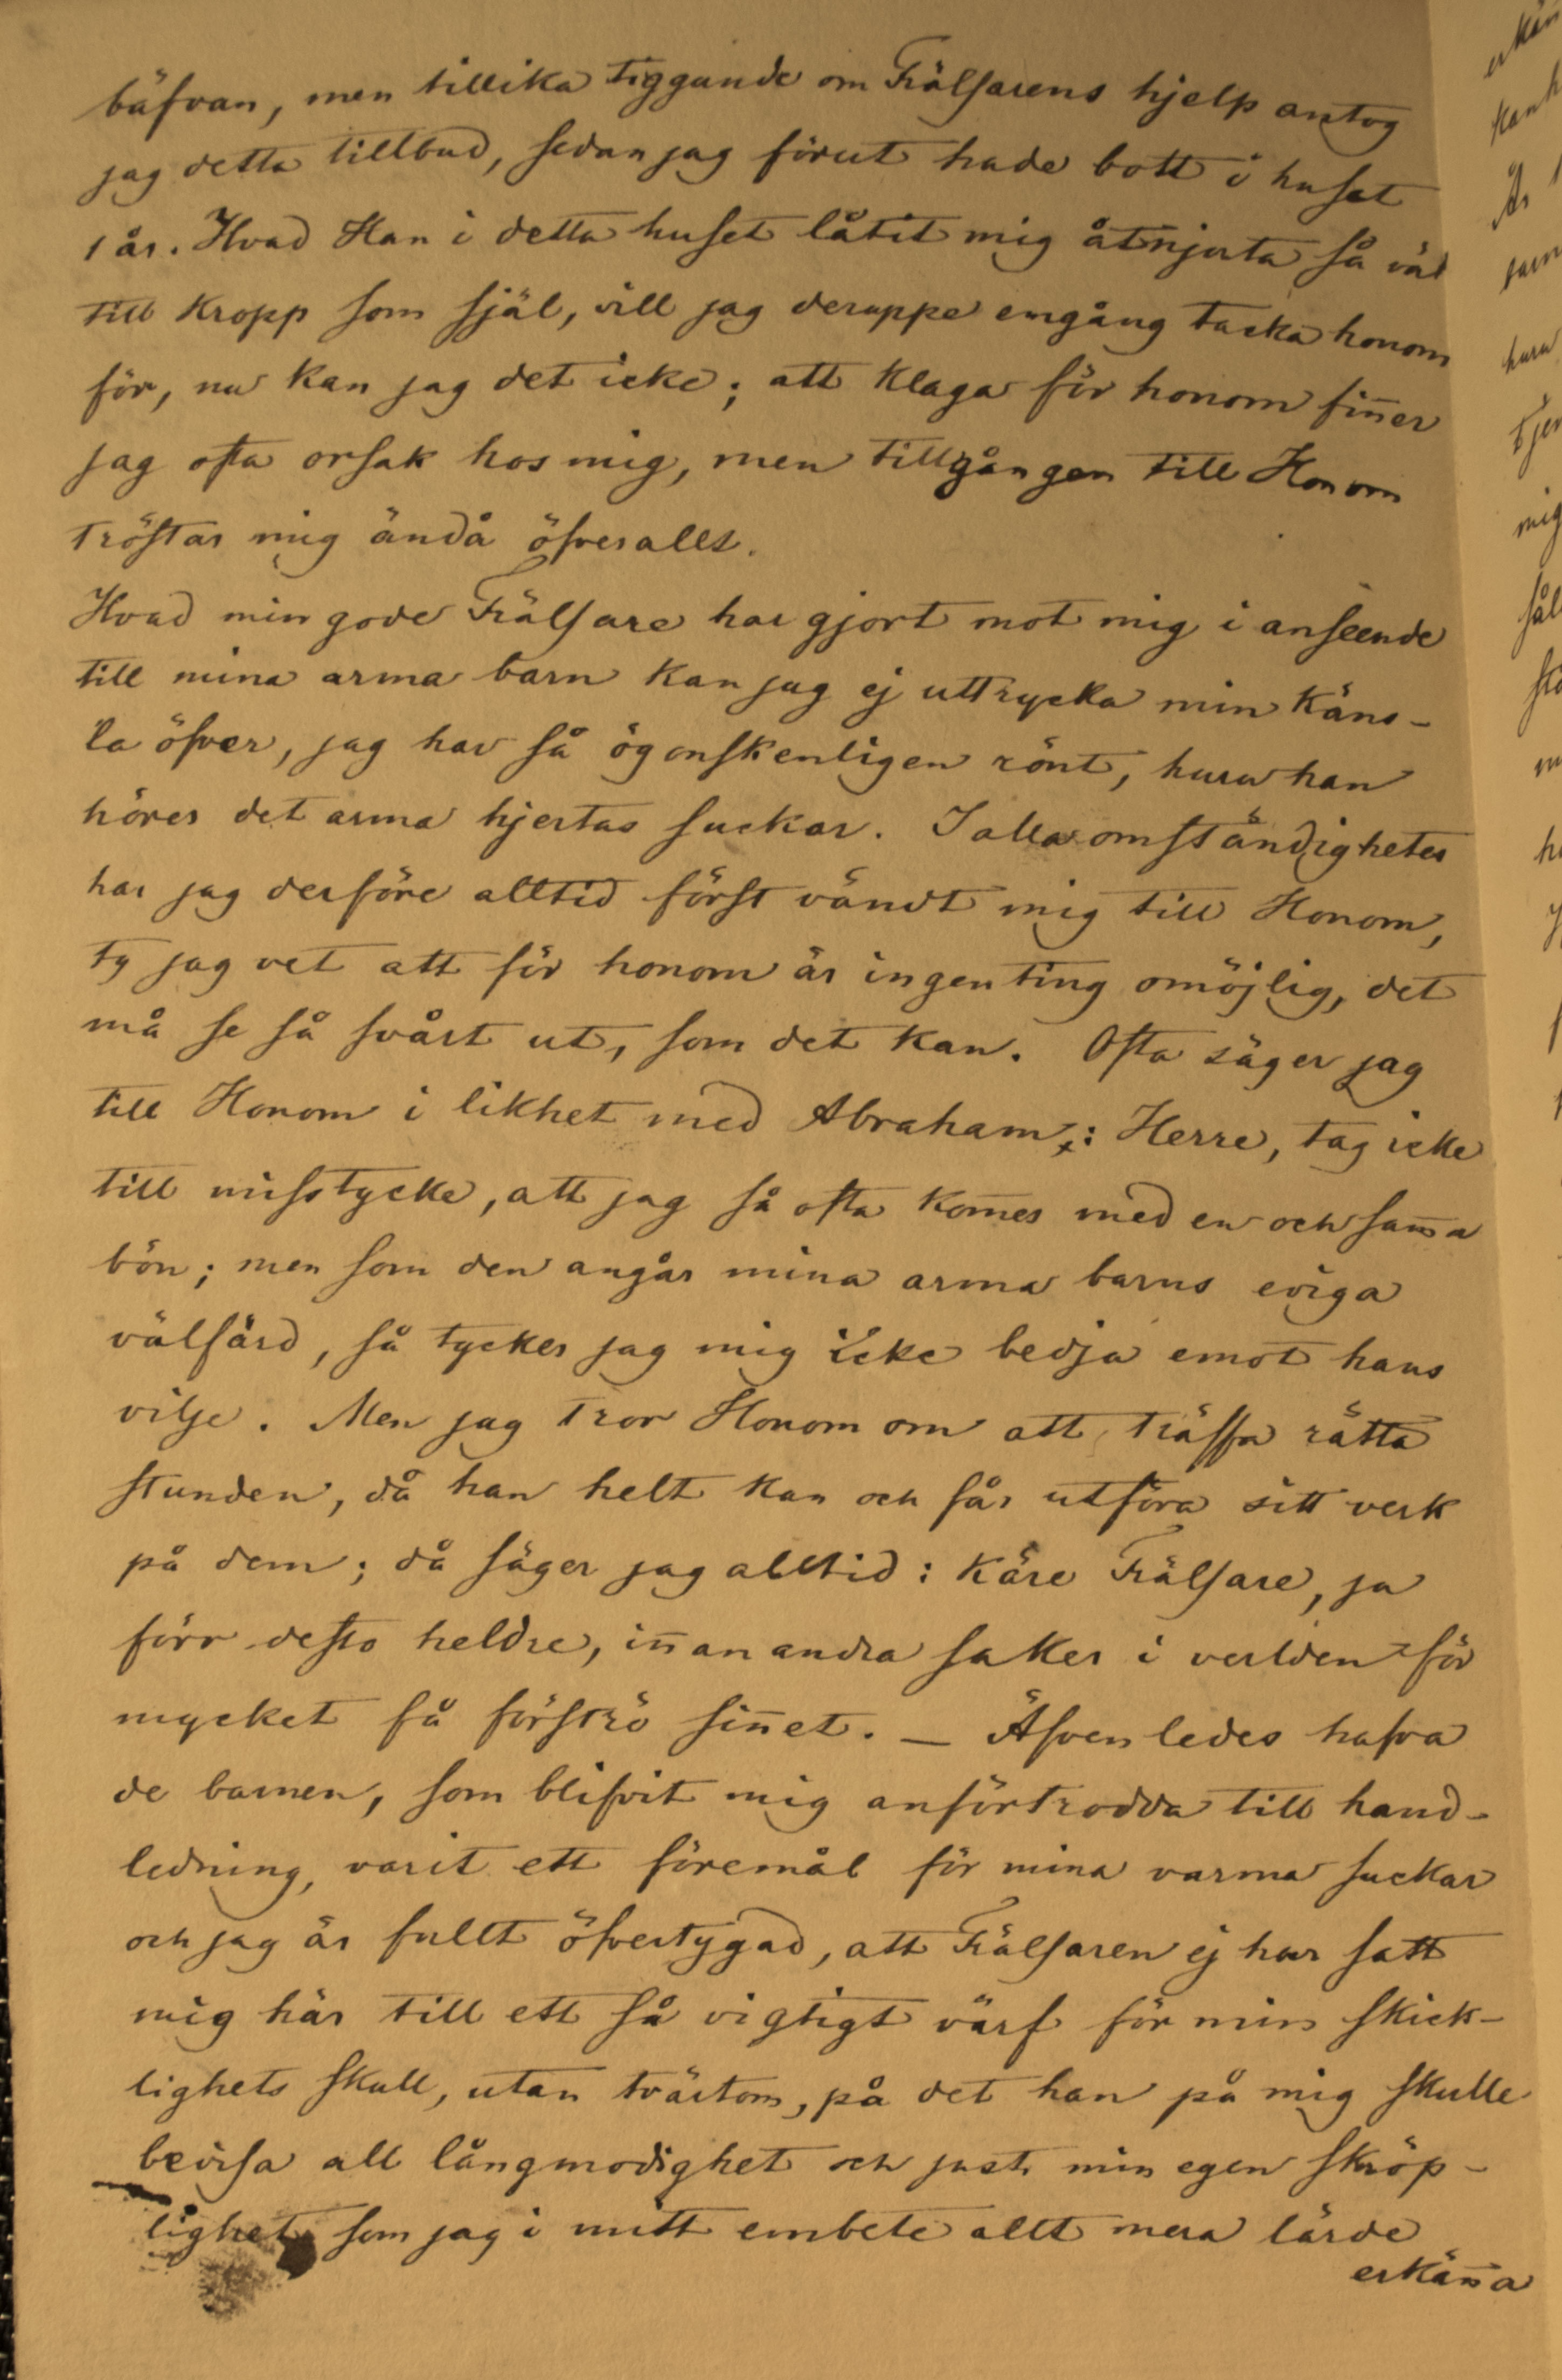 bäfvan, men tillika tiggande om Frälsarens hjelp antog
jag detta tillbud, sedan jag förut hade bott i huset
1 år. Hvad Han i detta huset låtit mig åtnjuta så väl
till kropp som själ, vill jag deruppe engång tacka honom
för, nu kan jag det icke; att klaga för honom fin̄er
jag ofta orsak hos mig, men tillgången till Honom
tröstar mig ändå öfverallt.
Hvad min gode Frälsare har gjort mot mig i anseende
till mina arma barn kan jag ej uttrycka min käns-
la öfver, jag har så ögonskenligen rönt, huru han
hörer det arma hjertas suckar. I alla omständigheter
har jag derföre alltid först vändt mig till Honom,
ty jag vet att för honom är ingenting omöjlig, det
må se så svårt ut, som det kan. Ofta säger jag
till Honom i likhet med Abraham: Herre, tag icke
till misstycke, att jag så ofta kom̄er med en och sam̄a
bön; men som den angår mina arma barns eviga
välfärd, så tycker jag mig icke bedja emot hans
vilje. Men jag tror Honom om att träffa rätta
stunden, då han helt kan och får utföra sitt verk
på dem; då säger jag alltid: Käre Frälsare, ja
förr desto heldre, in̄an andra saker i verlden för
mycket få förströ sin̄et. — Äfvenledes hafva
de barnen, som blifvit mig anförtrodda till hand-
ledning, varit ett föremål för mina varma suckar
och jag är fullt öfvertygad, att Frälsaren ej har satt
mig här till ett så vigtigt värf för min skick-
lighets skull, utan tvärtom, på det han på mig skulle
bevisa all långmodighet och just min egen skröp-
lighet som jag i mitt embete allt mera lärde
erkän̄a